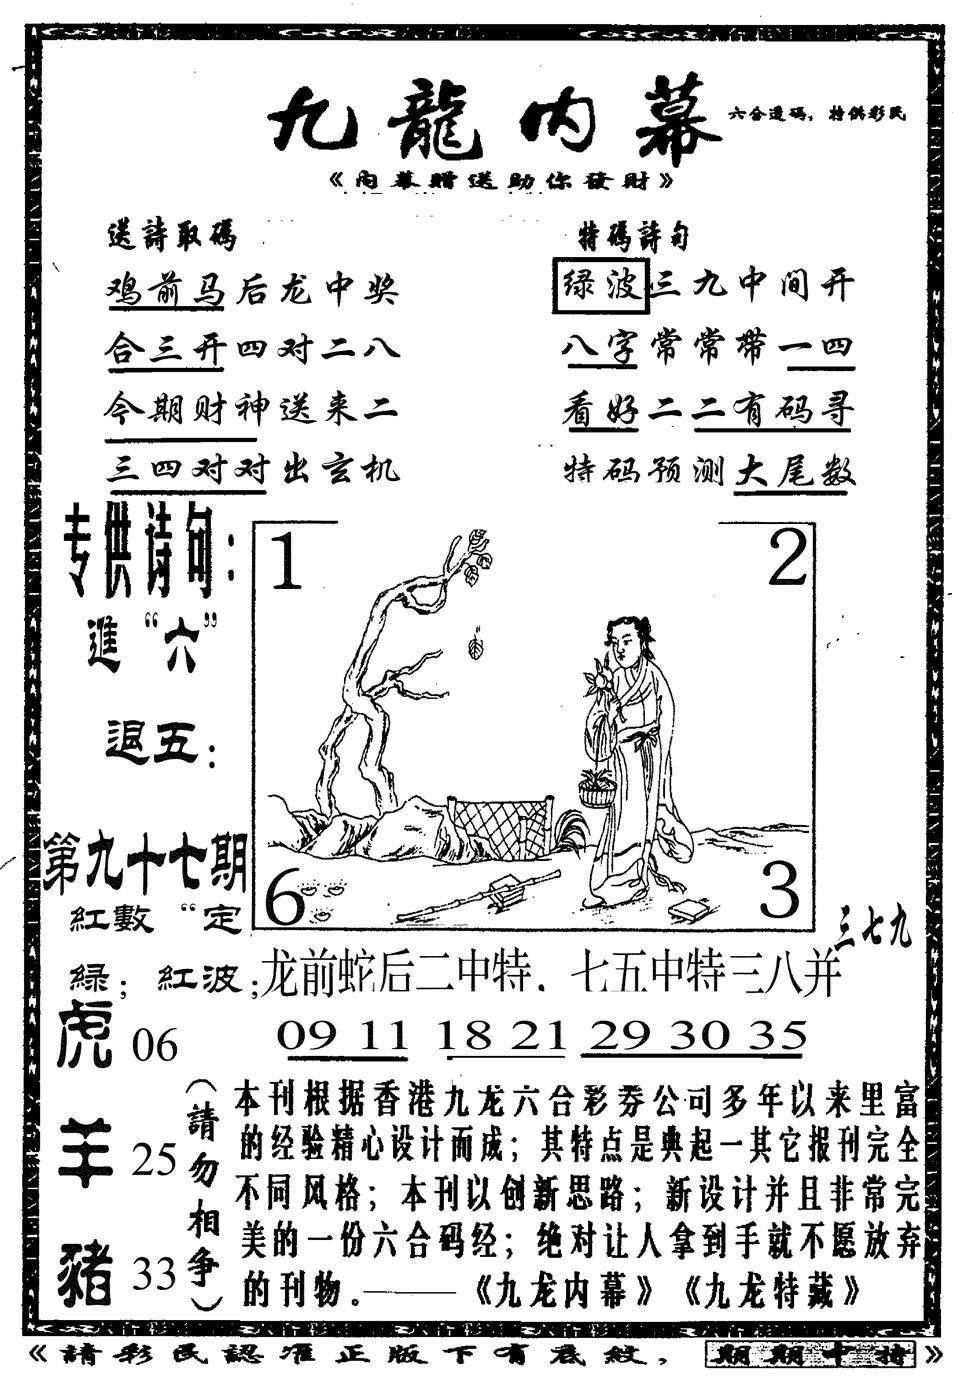 九龍内幕
六合透码，特供彩民
《内幕赠送助你發財》
送詩取碼
鸡前马后龙中奖
合三开四对二八
今期财神送来二
三四对对出玄机
特碼詩句
绿波三九中间开
八字常常带一四
看好二二有码寻
特码预测大尾数
专供诗句：
進“六”
退五：
第九十七期
紅數“定
綠；紅波；
1
2
6
3
三七九
龙前蛇后二中特．七五中特三八并
09 11 18 21 29 30 35
虎 06
羊 25
豬 33
（請勿相争）
本刊根据香港九龙六合彩券公司多年以来里富
的经验精心设计而成；其特点是典起一其它报刊完全
不同风格；本刊以创新思路；新设计并且非常完
美的一份六合码经；绝对让人拿到手就不愿放弃
的刊物.———《九龙内幕》《九龙特藏》
《請彩民認准正版下有底紋，期期中特》